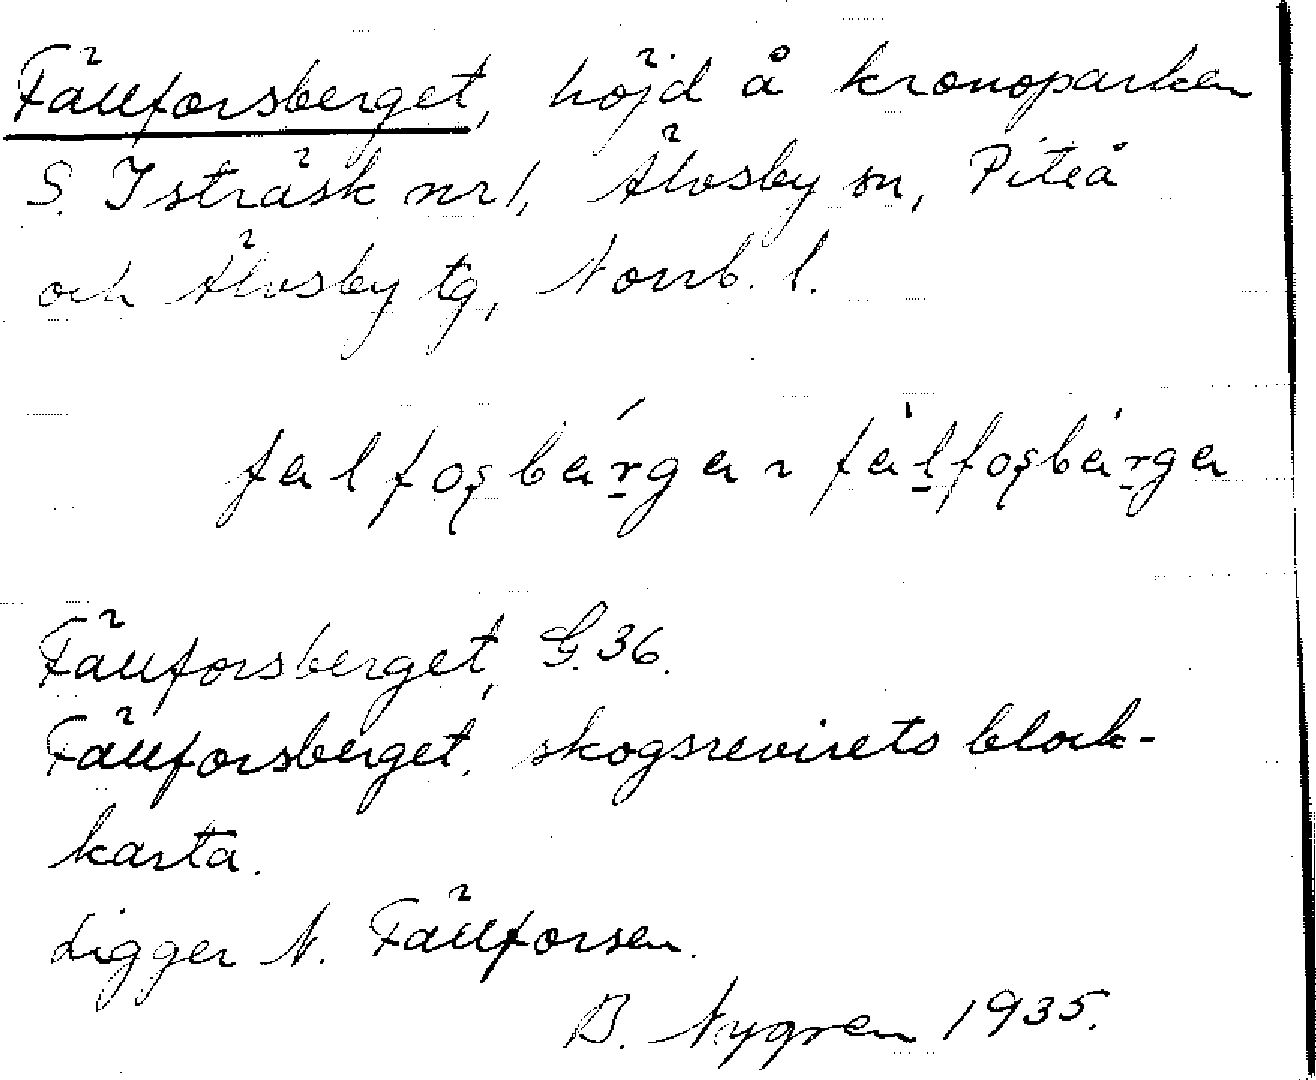 Fällforsberget, höjd å kronoparken
S. Isträsk nr 1, Älvsby sn, Piteå
och Älvsby tg, Norrb. l.
Fällforsberget, G. 36.
Fällforsberget, skogsrevirets block-
karta.
Ligger N. Fällforsen.
B. Nygren 1935.